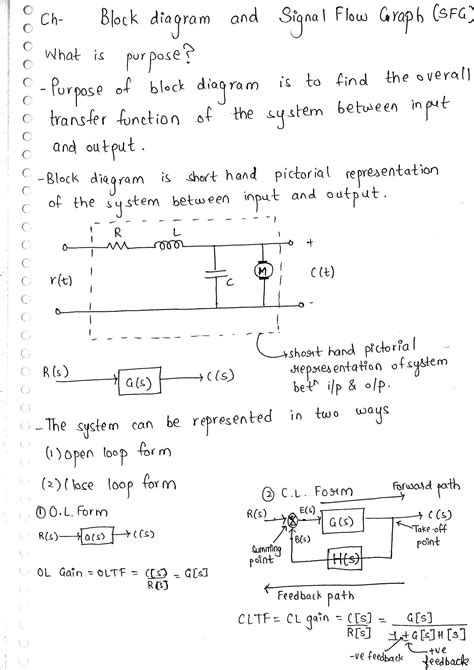 Ch- Block diagram and Signal Flow Graph (SFG)
What is purpose?
- Purpose of block diagram is to find the overall
transfer function of the system between input
and output.
- Block diagram is short hand pictorial representation
of the system between input and output.
R L
r(t) C M + C(t) -
short hand pictorial
representation of system
betⁿ i/p & o/p.
R(s) G(s) C(s)
- The system can be represented in two ways
(1) open loop form
(2) Close loop form
① O.L. Form
R(s) G(s) C(s)
OL Gain = OLTF = C[s]/R[s] = G[s]
② C.L. Form
Forward path
R(s) E(s) G(s) C(s)
Take-off
point
B(s)
Summing
point
H(s)
Feedback path
CLTF = CL gain = C[s]/R[s] = G[s]/1±G[s]H[s]
-ve feedback
+ve
feedback